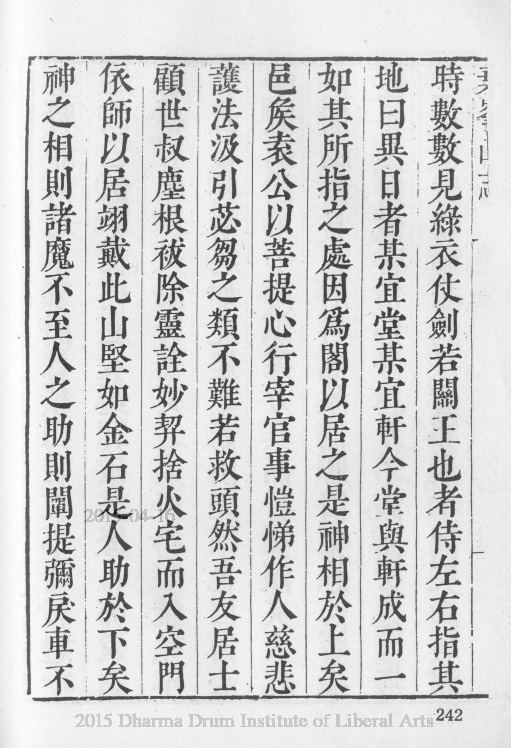 時數數見綠衣仗劍若關王也者侍左右指其
地曰異日者某宜堂某宜軒今堂與軒成而一
如其所指之處因爲閣以居之是神相於上矣
邑矦袁公以菩提心行宰官事愷悌作人慈悲
護法汲引苾芻之類不難若救頭然吾友居士
顧世叔塵根祓除靈詮妙契捨火宅而入空門
依師以居翊戴此山堅如金石是人助於下矣
神之相則諸魔不至人之助則闡提彌戾車不
242
2015 Dharma Drum Institute of Liberal Arts